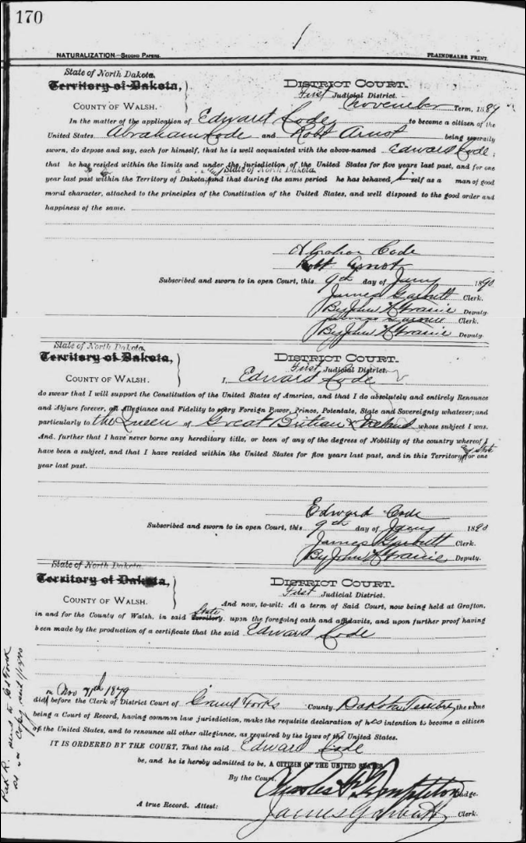 170
NATURALIZATION—SECOND PAPERS. PLAINDEALER PRINT.
State of North Dakota.
Territory of Dakota, DISTRICT COURT.
First Judicial District.
COUNTY OF WALSH. November Term, 1889
In the matter of the application of Edward Code to become a citizen of the
United States Abraham Code and Robt Arnot being severally
sworn, do depose and say, each for himself, that he is well acquainted with the above-named Edward Code;
that he has resided within the limits and under the jurisdiction of the United States for five years last past, and for one
State of North Dakota
year last past within the Territory of Dakota, and that during the same period he has behaved himself as a man of good
moral character, attached to the principles of the Constitution of the United States, and well disposed to the good order and
happiness of the same.
Abraham Code
Robt Arnot
Subscribed and sworn to in open Court, this 9th day of Jany 1890
James Garbutt Clerk.
By John Deputy.
Clerk.
By John Deputy.
State of North Dakota.
Territory of Dakota, DISTRICT COURT.
First Judicial District.
COUNTY OF WALSH. I, Edward Code
do swear that I will support the Constitution of the United States of America, and that I do absolutely and entirely Renounce
and Abjure forever, all Allegiance and Fidelity to every Foreign Power, Prince, Potentate, State and Sovereignty whatever; and
particularly to the Queen of Great Britian & Ireland whose subject I was.
And, further that I have never borne any hereditary title, or been of any of the degrees of Nobility of the country whereof I
have been a subject, and that I have resided within the United States for five years last past, and in this Territory for one
year last past.
Edward Code
Subscribed and sworn to in open Court, this 9th day of Jany 1890
James Garbutt Clerk.
By John Deputy.
State of North Dakota.
Territory of Dakota, DISTRICT COURT.
First Judicial District.
COUNTY OF WALSH. And now, to-wit: At a term of Said Court, now being held at Grafton,
in and for the County of Walsh, in said State Territory, upon the foregoing oath and affidavits, and upon further proof having
been made by the production of a certificate that the said Edward Code
on Nov 7th 1879
did before the Clerk of District Court of Grand Forks County Dakota Territory, the same
being a Court of Record, having common law jurisdiction, make the requisite declaration of his intention to become a citizen
of the United States, and to renounce all other allegiance, as required by the laws of the United States.
IT IS ORDERED BY THE COURT, That the said Edward Code
be, and he is hereby admitted to be, A CITIZEN OF THE UNITED STATES.
By the Court.
Charles F. Templeton Judge.
A true Record. Attest: James Garbutt Clerk.